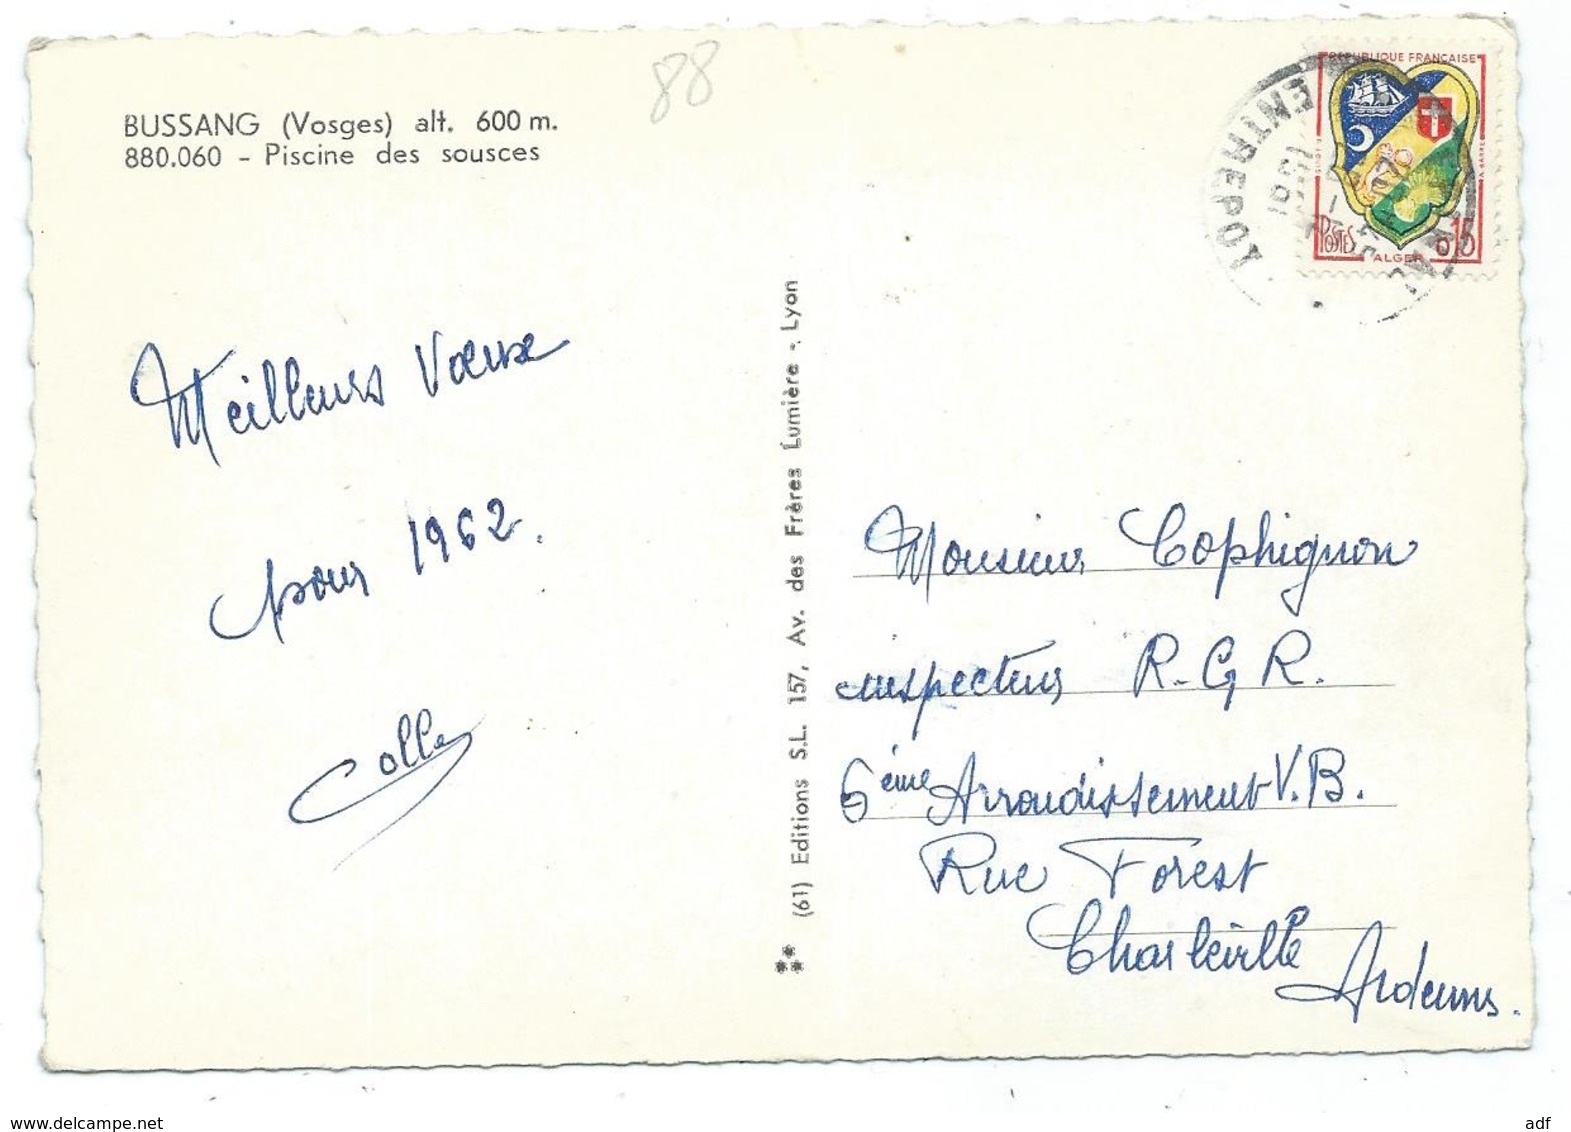 BUSSANG (Vosges) alt. 600 m.
880.060 - Piscine des sousces
88
Meilleurs Vœux
pour 1962.
Colle
(61) Editions S.L. 157, Av. des Frères Lumière - Lyon
RÉPUBLIQUE FRANÇAISE
POSTES
0,15
ALGER
ENTREPÔT
1961
Monsieur Cophignon
inspecteur R.G.R.
6ème Arrondissement V.B.
Rue Forest
Charleville
Ardennes.
www.delcampe.net
adf